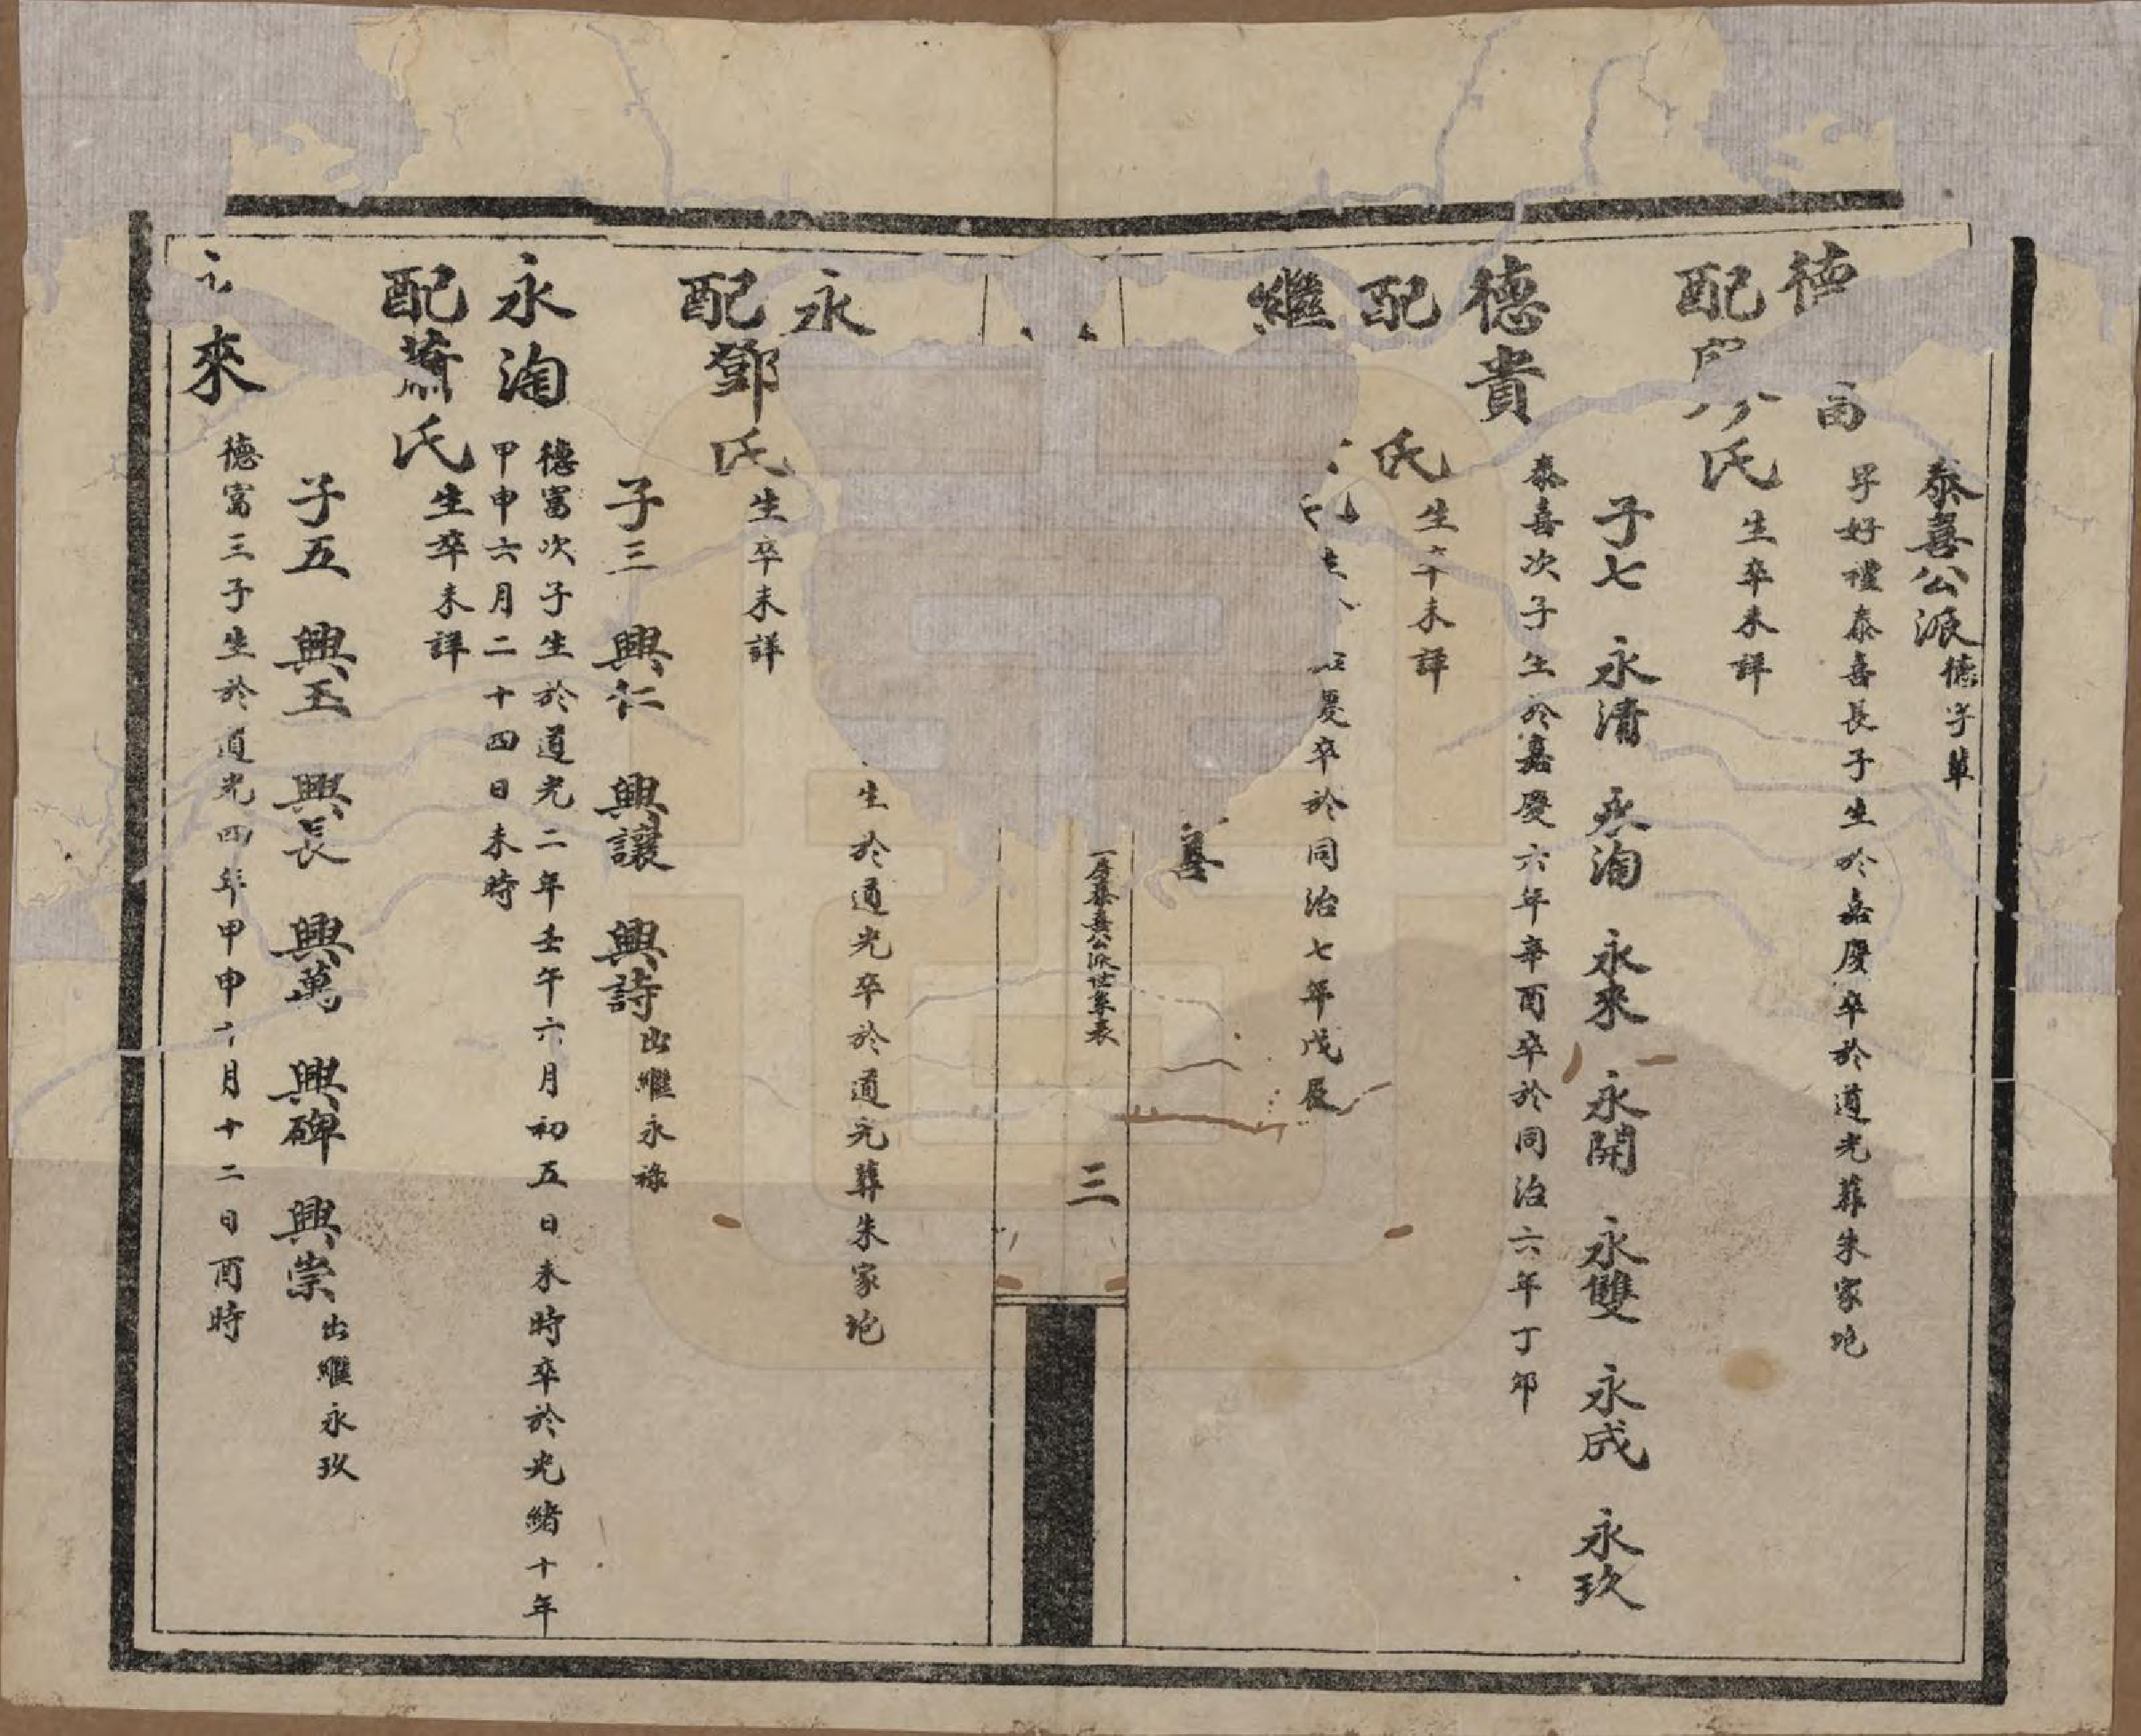 泰喜公派德字輩
德富字好禮泰喜長子生於嘉慶卒於道光葬朱家地
配氏生卒未詳
子七 永清 永淘 永來 永開 永雙 永成 永玖
德貴泰喜次子生於嘉慶六年辛酉卒於同治六年丁卯
配氏生卒未詳
繼氏生慶卒於同治七年戊辰
善
一房泰喜公派世系表
三
永生於道光卒於道光葬朱家地
配鄧氏生卒未詳
子三 興仁 興讓 興詩出繼永祿
永淘德富次子生於道光二年壬午六月初五日未時卒於光緒十年
甲申六月二十四日未時
配蕭氏生卒未詳
子五 興玉 興長 興萬 興碑 興崇出繼永玖
永來德富三子生於道光四年甲申六月十二日酉時